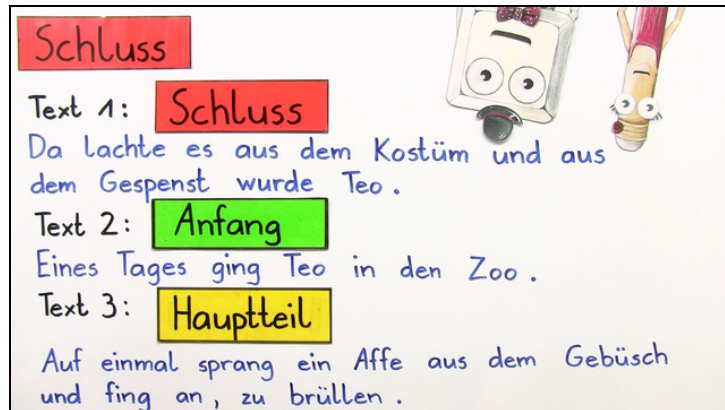 Schluss
Text 1: Schluss
Da lachte es aus dem Kostüm und aus
dem Gespenst wurde Teo.
Text 2: Anfang
Eines Tages ging Teo in den Zoo.
Text 3: Hauptteil
Auf einmal sprang ein Affe aus dem Gebüsch
und fing an, zu brüllen.